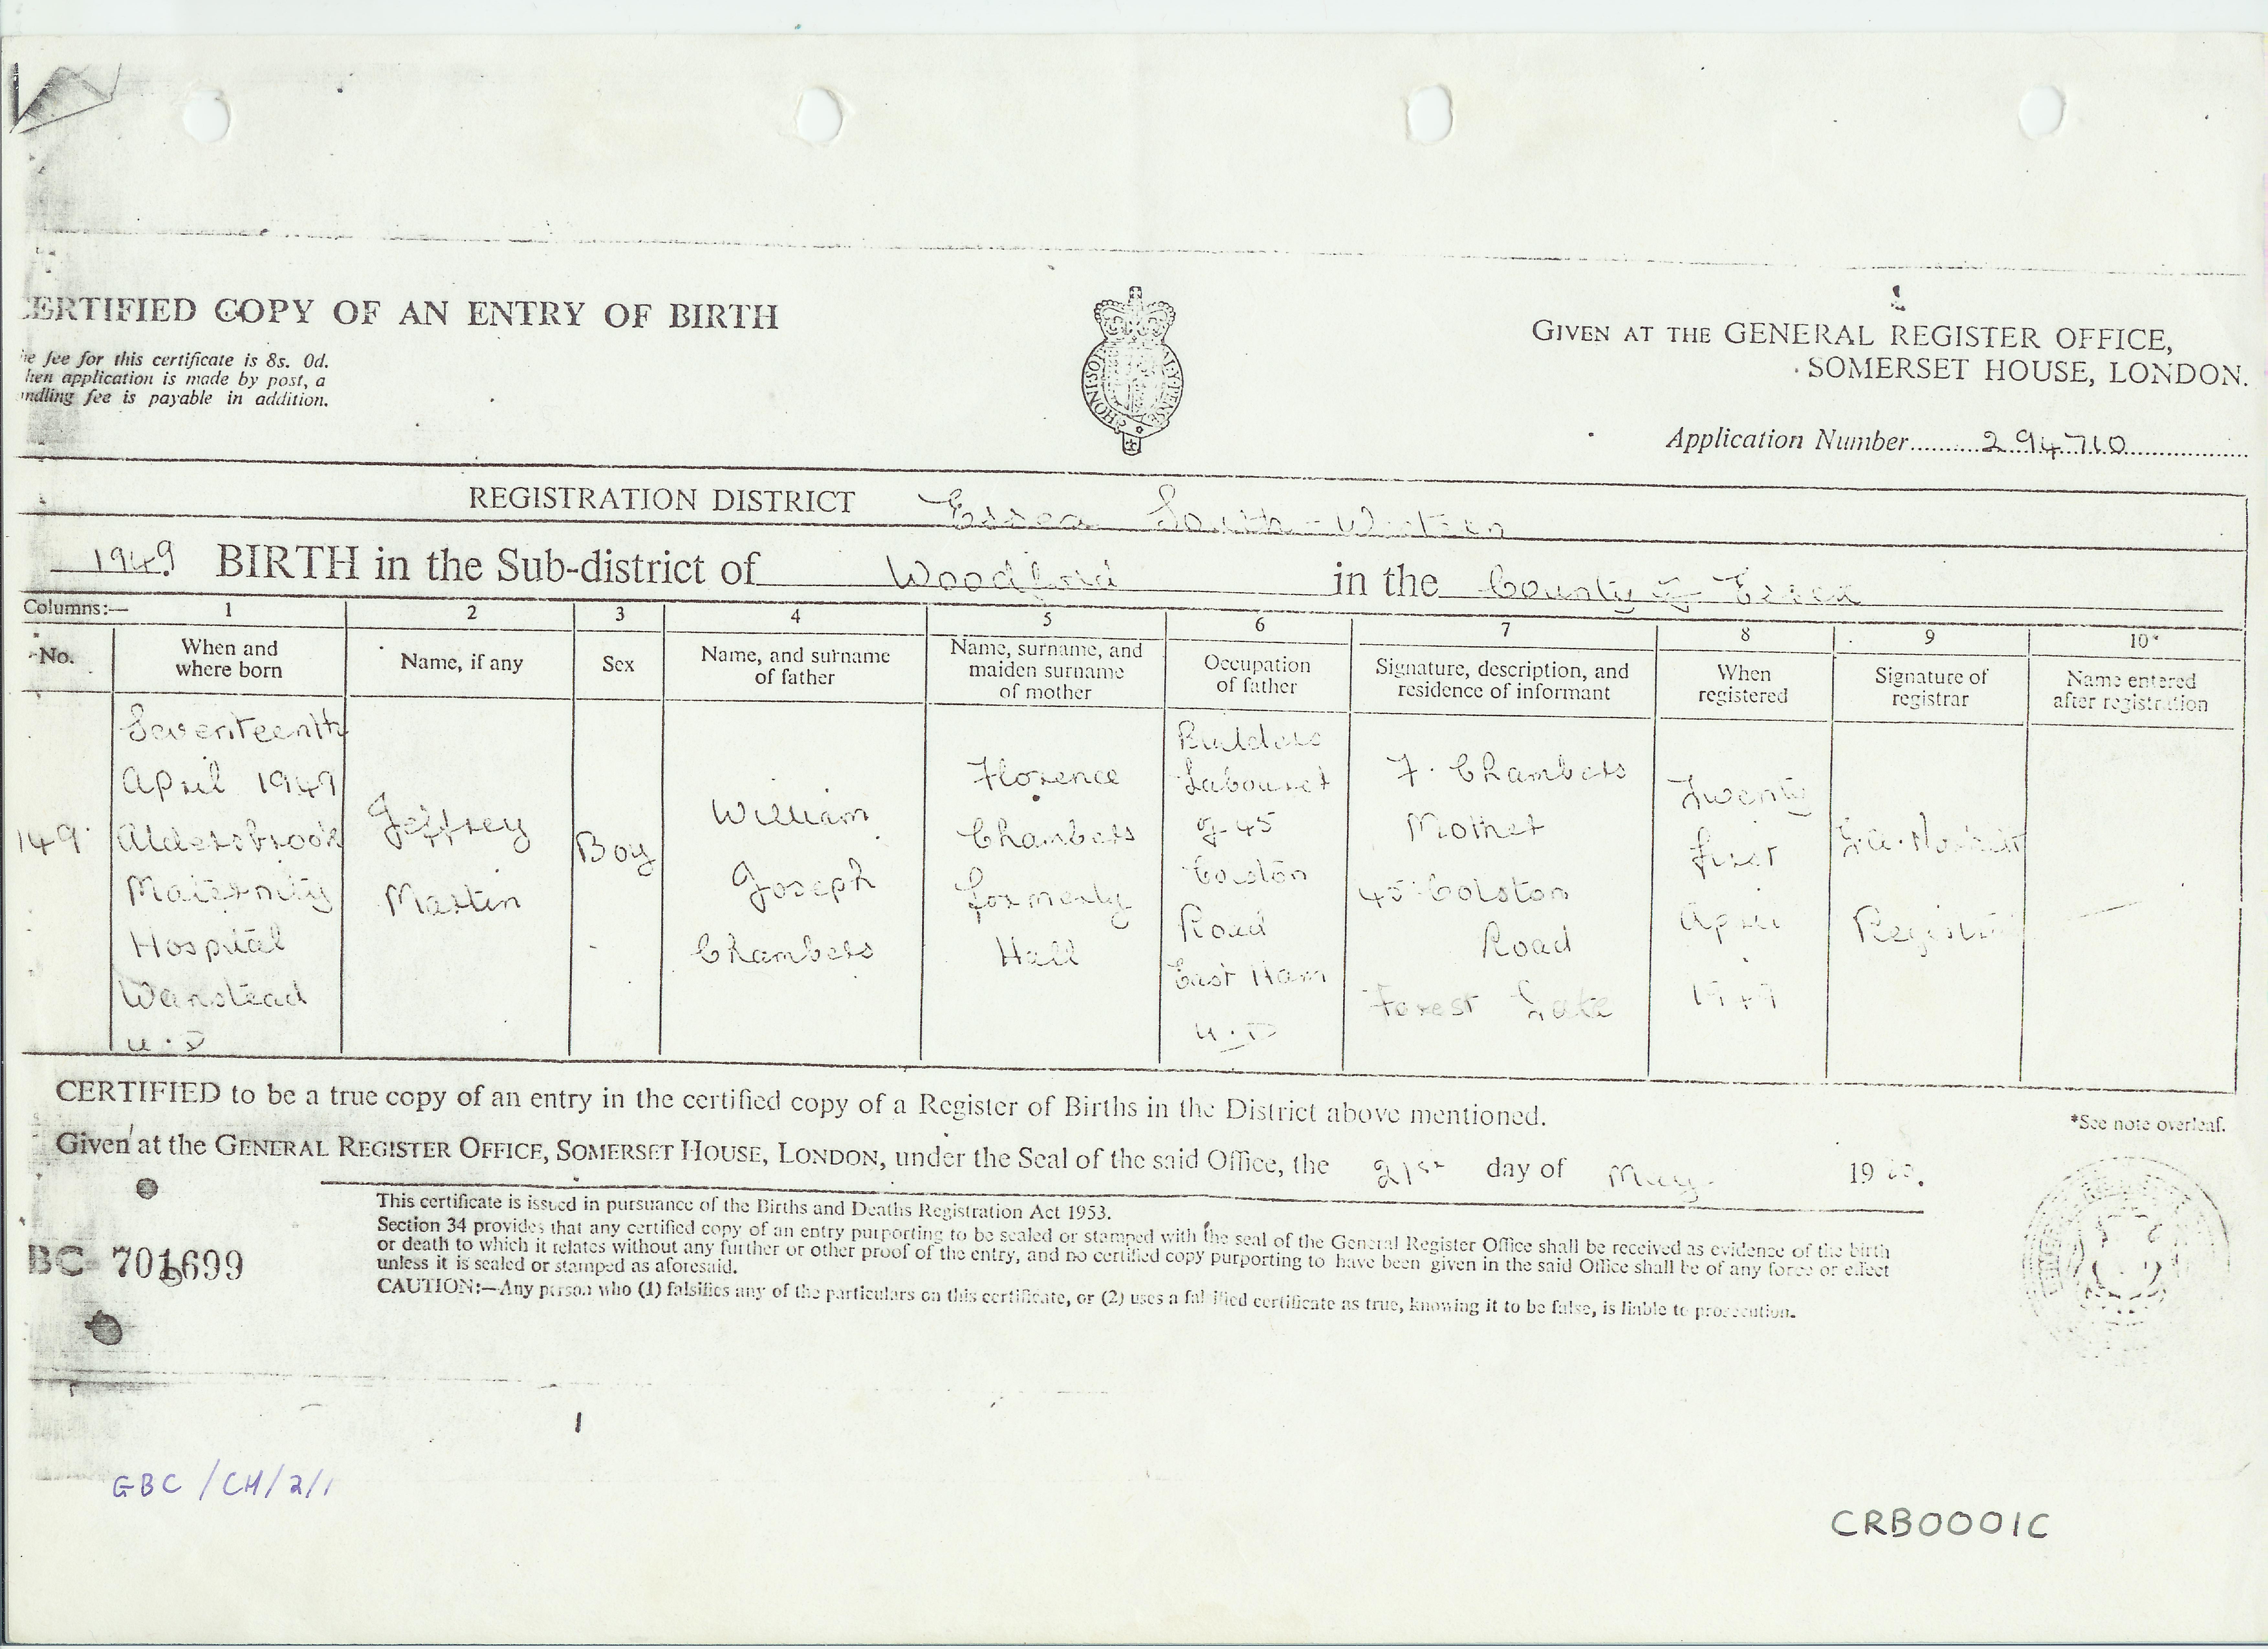 CERTIFIED COPY OF AN ENTRY OF BIRTH
fee for this certificate is 8s. 0d.
application is made by post, a
fee is payable in addition.
HONI SOIT
GIVEN AT THE GENERAL REGISTER OFFICE,
SOMERSET HOUSE, LONDON.
Application Number 294710
REGISTRATION DISTRICT Essex South-Western
1949 BIRTH in the Sub-district of Woodford in the County of Essex
Columns:— 1 2 3 4 5 6 7 8 9 10*
No.
When and
where born
Name, if any
Sex
Name, and surname
of father
Name, surname, and
maiden surname
of mother
Occupation
of father
Signature, description, and
residence of informant
When
registered
Signature of
registrar
Name entered
after registration
149
Seventeenth
April 1949
Aldersbrook
Maternity
Hospital
Wanstead
U.D
Jeffrey
Martin
Boy
William
Joseph
Chambers
Florence
Chambers
formerly
Hall
Builders
Labourer
of 45
Road
East Ham
U.D
F. Chambers
Mother
45 Colston
Road
Forest Gate
Twenty
first
April
1949
Registrar
CERTIFIED to be a true copy of an entry in the certified copy of a Register of Births in the District above mentioned.
*See note overleaf.
Given at the GENERAL REGISTER OFFICE, SOMERSET HOUSE, LONDON, under the Seal of the said Office, the 21st day of May 19
This certificate is issued in pursuance of the Births and Deaths Registration Act 1953.
Section 34 provides that any certified copy of an entry purporting to be sealed or stamped with the seal of the General Register Office shall be received as evidence of the birth
or death to which it relates without any further or other proof of the entry, and no certified copy purporting to have been given in the said Office shall be of any force or effect
unless it is sealed or stamped as aforesaid.
CAUTION:—Any person who (1) falsifies any of the particulars on this certificate, or (2) uses a falsified certificate as true, knowing it to be false, is liable to prosecution.
BC 701699
GBC/CH/2/1
CRB0001C